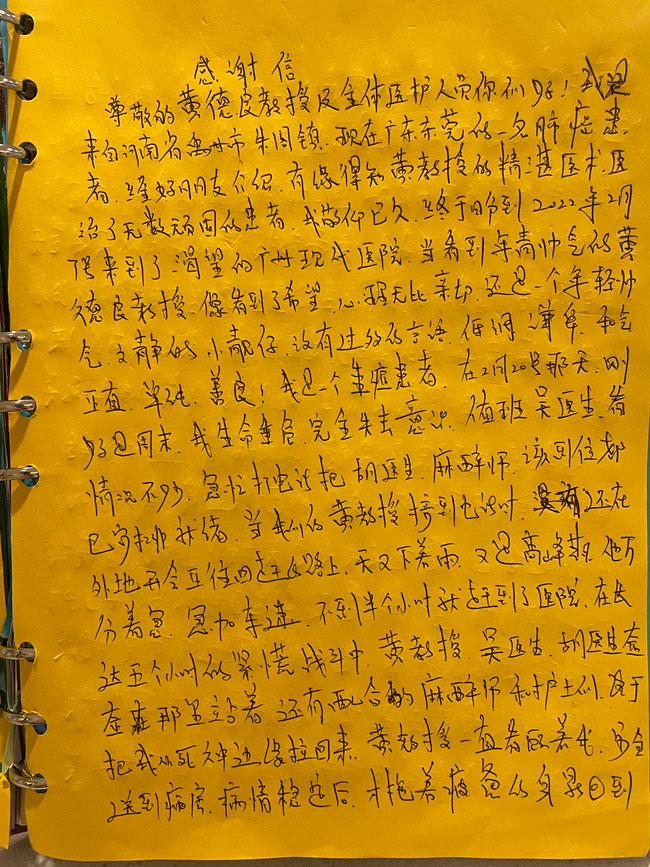 感谢信
尊敬的黄德良教授及全体医护人员你们好！我是
来自河南省禹州市朱阁镇，现在广东东莞的一名肺癌患
者，经好朋友介绍，有缘得知黄教授的精湛医术，医
治了无数顽固的患者，我敬仰已久，终于盼到2022年2月
来到了渴望的广州现代医院，当看到年青帅气的黄
德良教授，像看到了希望，心里无比亲切，还是一个年轻帅
气，文静的小靓仔，没有过多的言语，低调
正直，单纯，善良！我是一个重症患者，在2月20号那天，刚
好是周末，我生命垂危，完全失去意识，值班吴医生，看
情况不妙，急忙打电话把胡医生，麻醉师，该到位都
已安排就绪，当我们的黄教授接到电话时，还在
外地开会正往回赶的路上，天又下着雨，又是高峰期，他万
分着急，急加车速，不到半个小时就赶到了医院，在长
达五个小时的紧慌战斗中，黄教授，吴医生，胡医生
那里站着，还有配合的麻醉师和护士们，终于
把我从死神边缘拉回来，黄教授一直看我，安全
送到病房，病情稳定后，才拖着疲惫的身躯回到